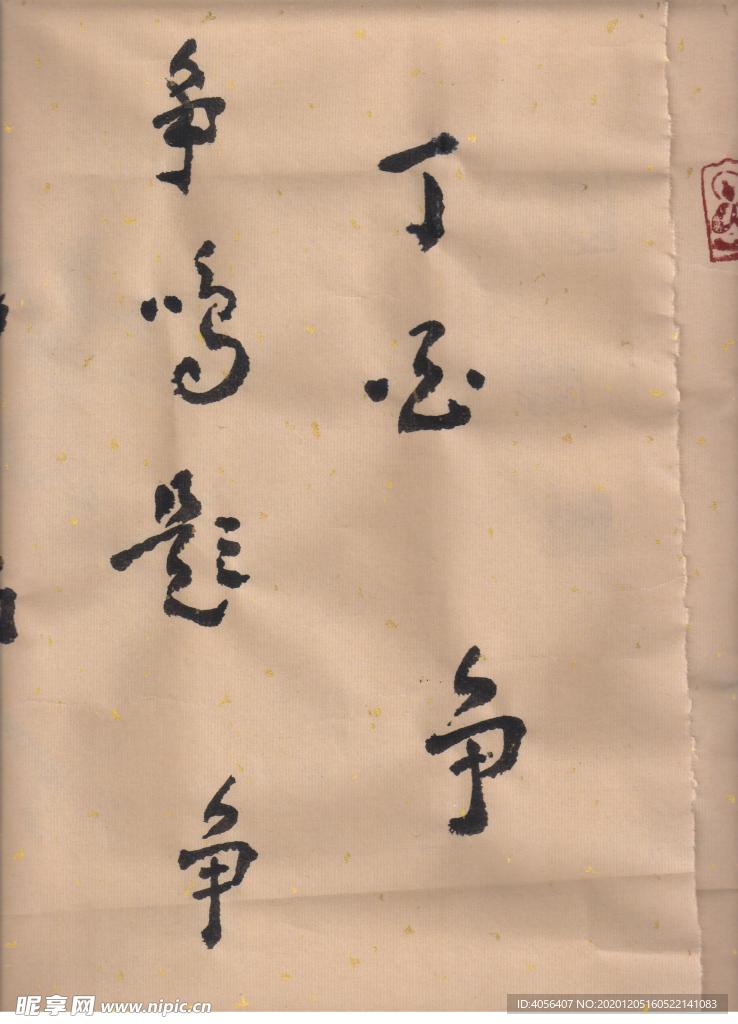 丁 争
争鸣题 争
昵享网 www.nipic.cn
ID:4056407 NO:20201205160522141083